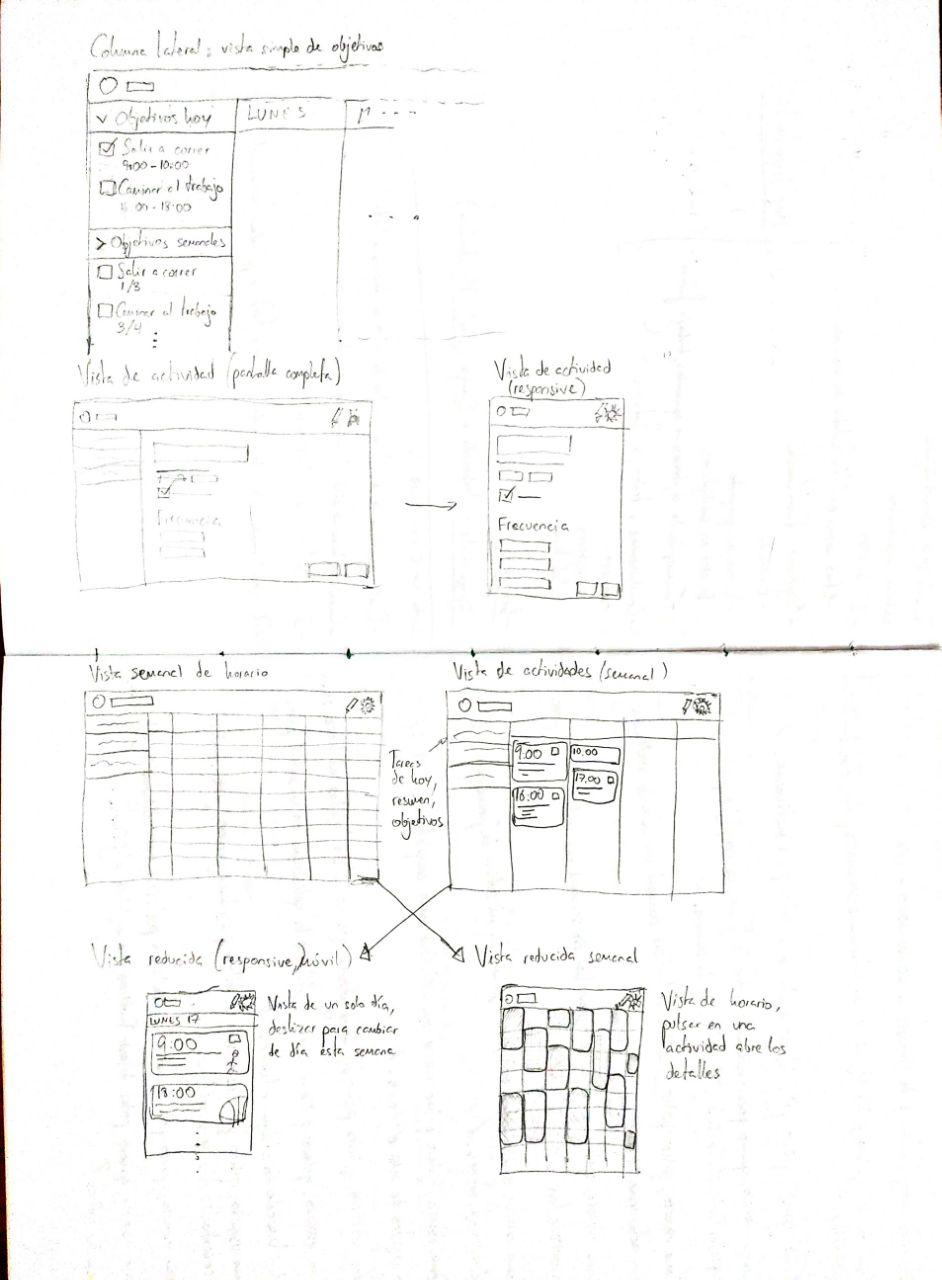 Columna lateral: vista simple de objetivos
Objetivos hoy
LUNES
M
Salir a correr
9:00 - 10:00
Caminar al trabajo
- 18:00
Objetivos semanales
Salir a correr
1/3
Caminar al trabajo
3/4
Vista de actividad (pantalla completa)
Frecuencia
Vista de actividad
(responsive)
Frecuencia
Vista semanal de horario
Vista de actividades (semanal)
Tareas
de hoy,
resumen,
objetivos
9:00
10:00
17:00
16:00
Vista reducida (responsive, móvil)
LUNES 17
9:00
18:00
Vista de un solo día,
deslizar para cambiar
de día esta semana
Vista reducida semanal
Vista de horario,
pulsar en una
actividad abre los
detalles